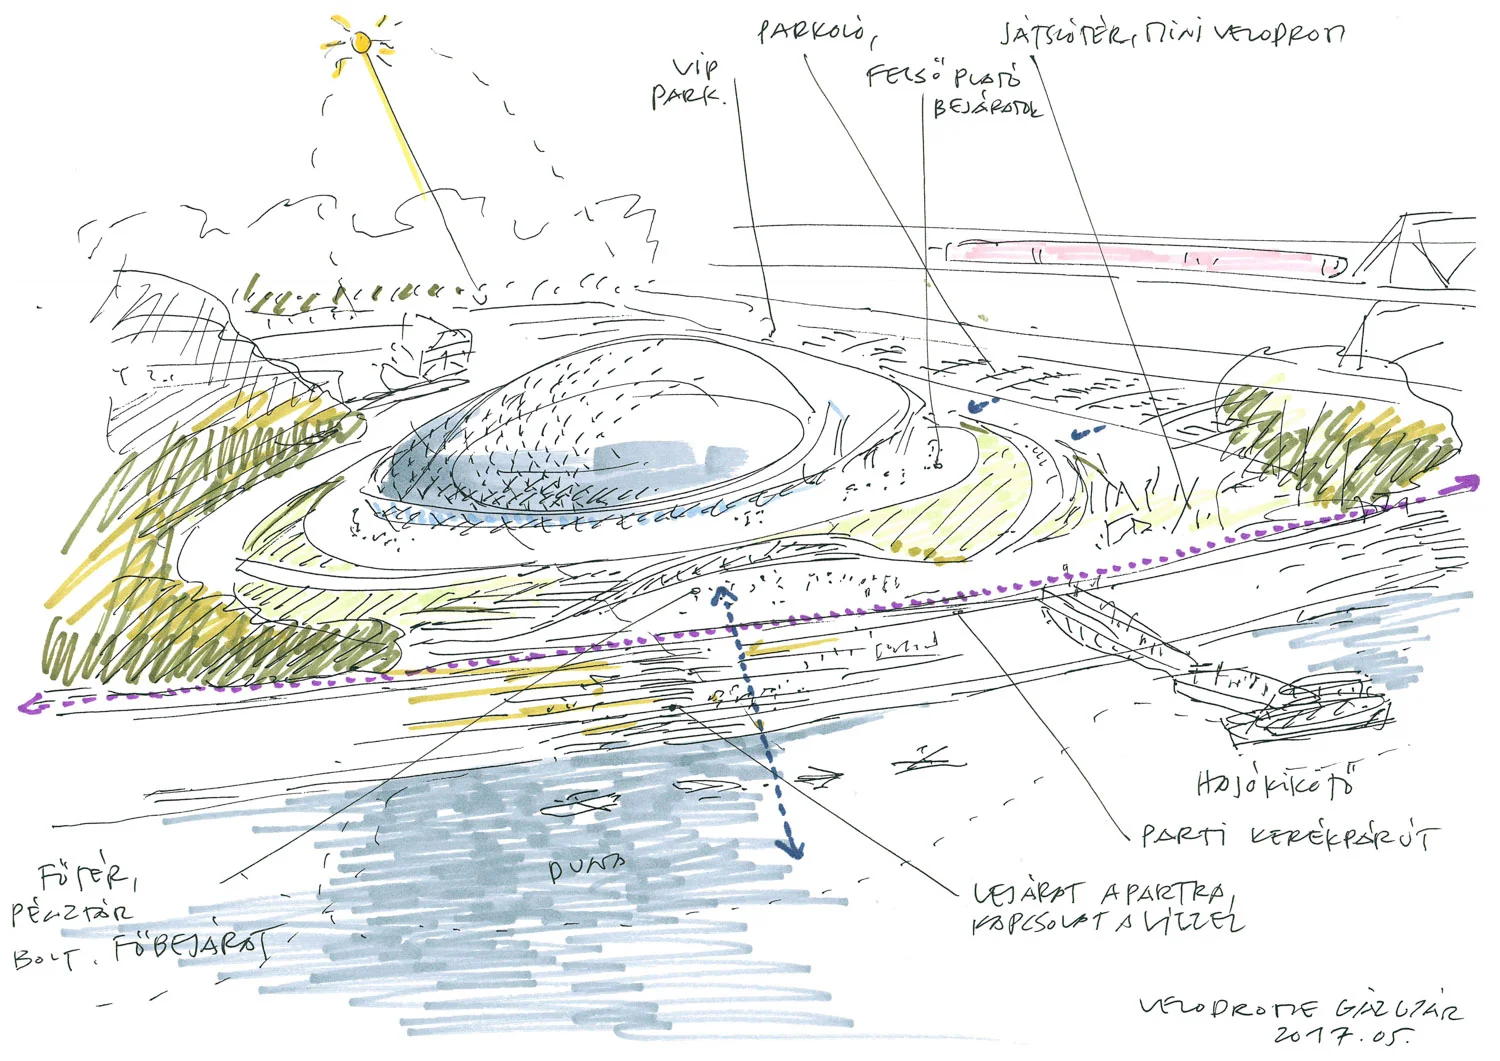 PARKOLÓ,
JÁTSZÓTÉR, MINI VELODROM
VIP
PARK.
FELSŐ PLATÓ
BEJÁRATOK
HAJÓKIKÖTŐ
PARTI KERÉKPÁRÚT
DUNA
FŐTÉR,
PÉNZTÁR
BOLT. FŐBEJÁRAT
LEJÁRAT A PARTRA,
KAPCSOLAT A VÍZZEL
VELODROME GÁZGYÁR
2017.05.